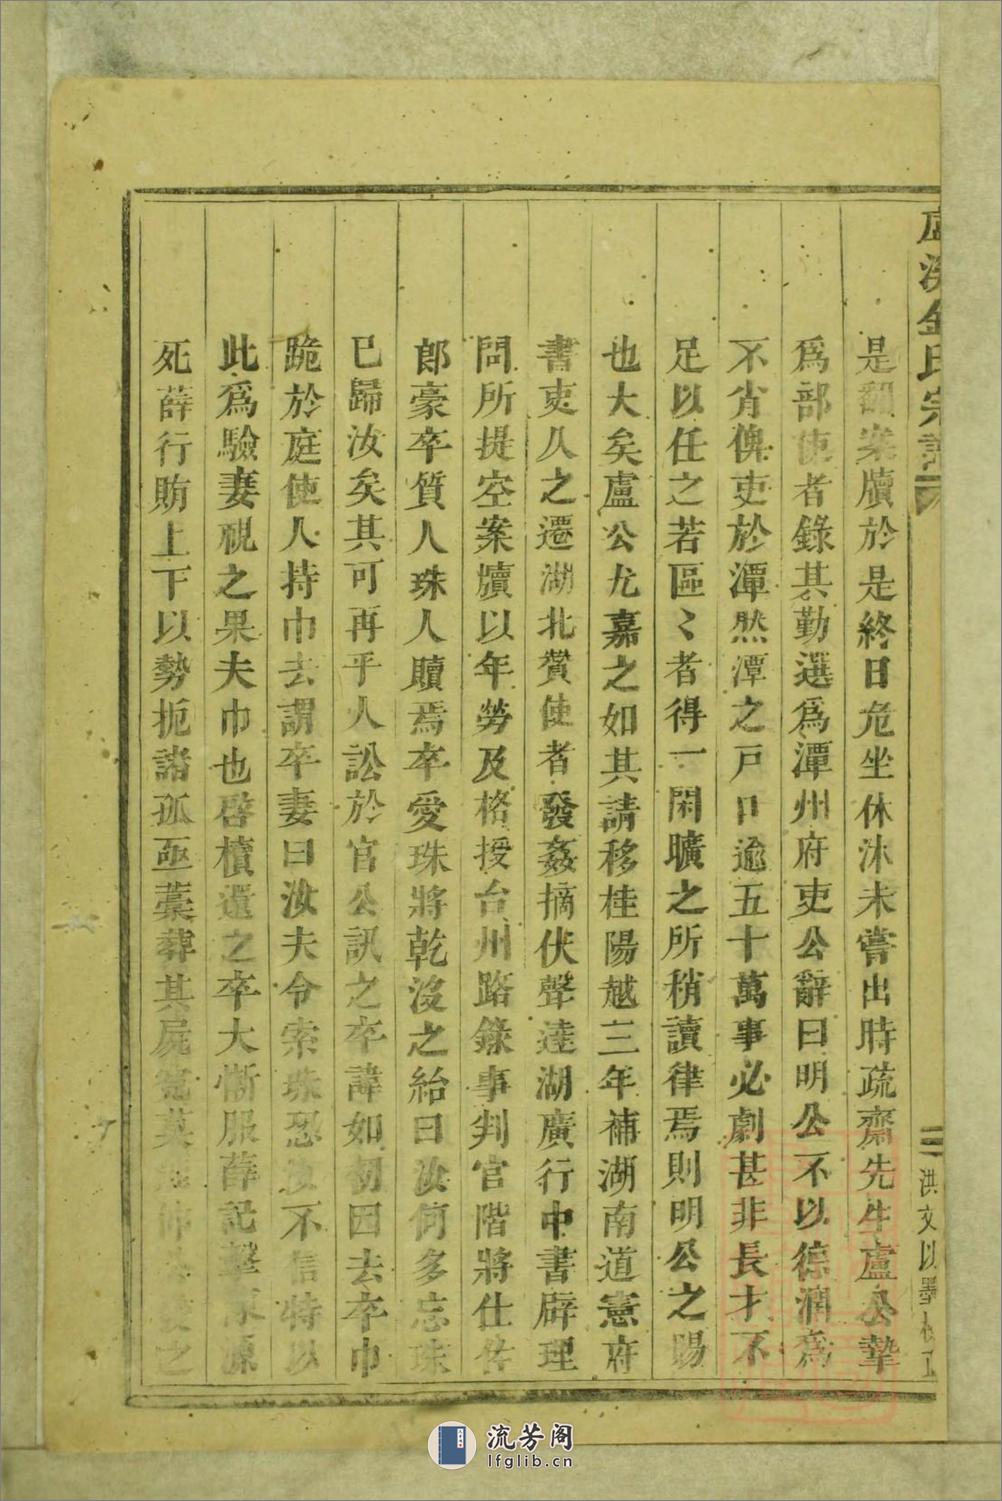 金氏宗譜
是翻案牘於是終日危坐休沐未嘗出時疏齋先生盧公摯
爲部使者錄其勤選爲潭州府吏公辭曰明公不以德潤爲
不肖俾吏於潭然潭之戸口逾五十萬事必劇甚非長才不
足以任之若區〻者得一閑曠之所稍讀律焉則明公之賜
也大矣盧公尤嘉之如其請移桂陽越三年補湖南道憲府
書吏久之遷湖北賛使者發姦摘伏聲逹湖廣行中書辟理
問所提空案牘以年勞及格授台州路錄事判官階將仕佐
郎豪卒質人珠人贖焉卒愛珠將乾沒之紿曰汝何多忘珠
已歸汝矣其可再乎人訟於官公訊之卒諱如初因去卒巾
跪於庭使人持巾去謂卒妻曰汝夫令索珠恐汝不信特以
此爲驗妻視之果夫巾也啓櫝還之卒大慚服薛記擊
死薛行賄上下以勢扼諸孤亟藁葬其屍寃莫
三
洪文以墨
流芳阁
lfglib.cn